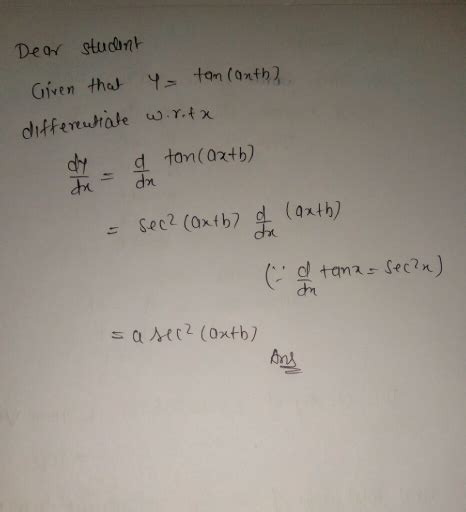 Dear student
Given that y = tan(ax+b)
differentiate w.r.t x
dy/dx = d/dx tan(ax+b)
= sec²(ax+b) d/dx (ax+b)
(∵ d/dx tanx = sec²x)
= a sec²(ax+b)
Ans